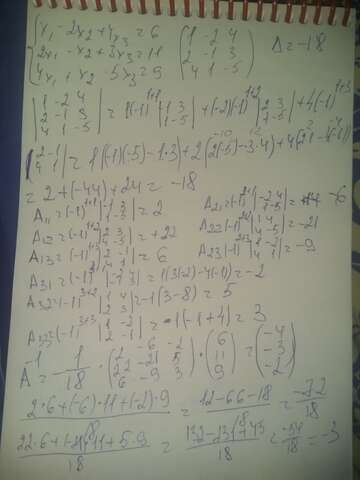 x₁ - 2x₂ + 4x₃ = 6
2x₁ - x₂ + 3x₃ = 11
4x₁ + x₂ - 5x₃ = 9
(1 -2 4
2 -1 3
4 1 -5) Δ = -18
|1 -2 4
2 -1 3
4 1 -5| = 1(-1)¹⁺¹ |-1 3
1 -5| + (-2)(-1)¹⁺² |2 3
4 -5| + 4(-1)¹⁺³
|2 -1
4 1| = 1((-1)(-5) - 1·3) + 2(2(-5) - 3·4) + 4(2·1 - 4(-1))
= 2 + (-44) + 24 = -18
A₁₁ = (-1)¹⁺¹ |-1 3
1 -5| = 2
A₁₂ = (-1)¹⁺² |2 3
4 -5| = +22
A₁₃ = (-1)¹⁺³ |2 -1
4 1| = 6
A₂₁ = (-1)²⁺¹ |-2 4
1 -5| = -6
A₂₂ = (-1)²⁺² |1 4
4 -5| = -21
A₂₃ = (-1)²⁺³ |1 -2
4 1| = -9
A₃₁ = (-1)³⁺¹ |-2 4
-1 3| = 1(3(-2) - 4(-1)) = -2
A₃₂ = (-1)³⁺² |1 4
2 3| = -1(3-8) = 5
A₃₃ = (-1)³⁺³ |1 -2
2 -1| = 1(-1+4) = 3
A⁻¹ = 1/18 · (2 -6 -2
22 -21 5
6 -9 3) · (6
11
9) = (-4
-3
-2)
2·6+(-6)·11+(-2)·9 / 18 = 12-66-18 / 18 = -72/18
22·6+(-21)·11+5·9 / 18 = 132-231+45 / 18 = -54/18 = -3